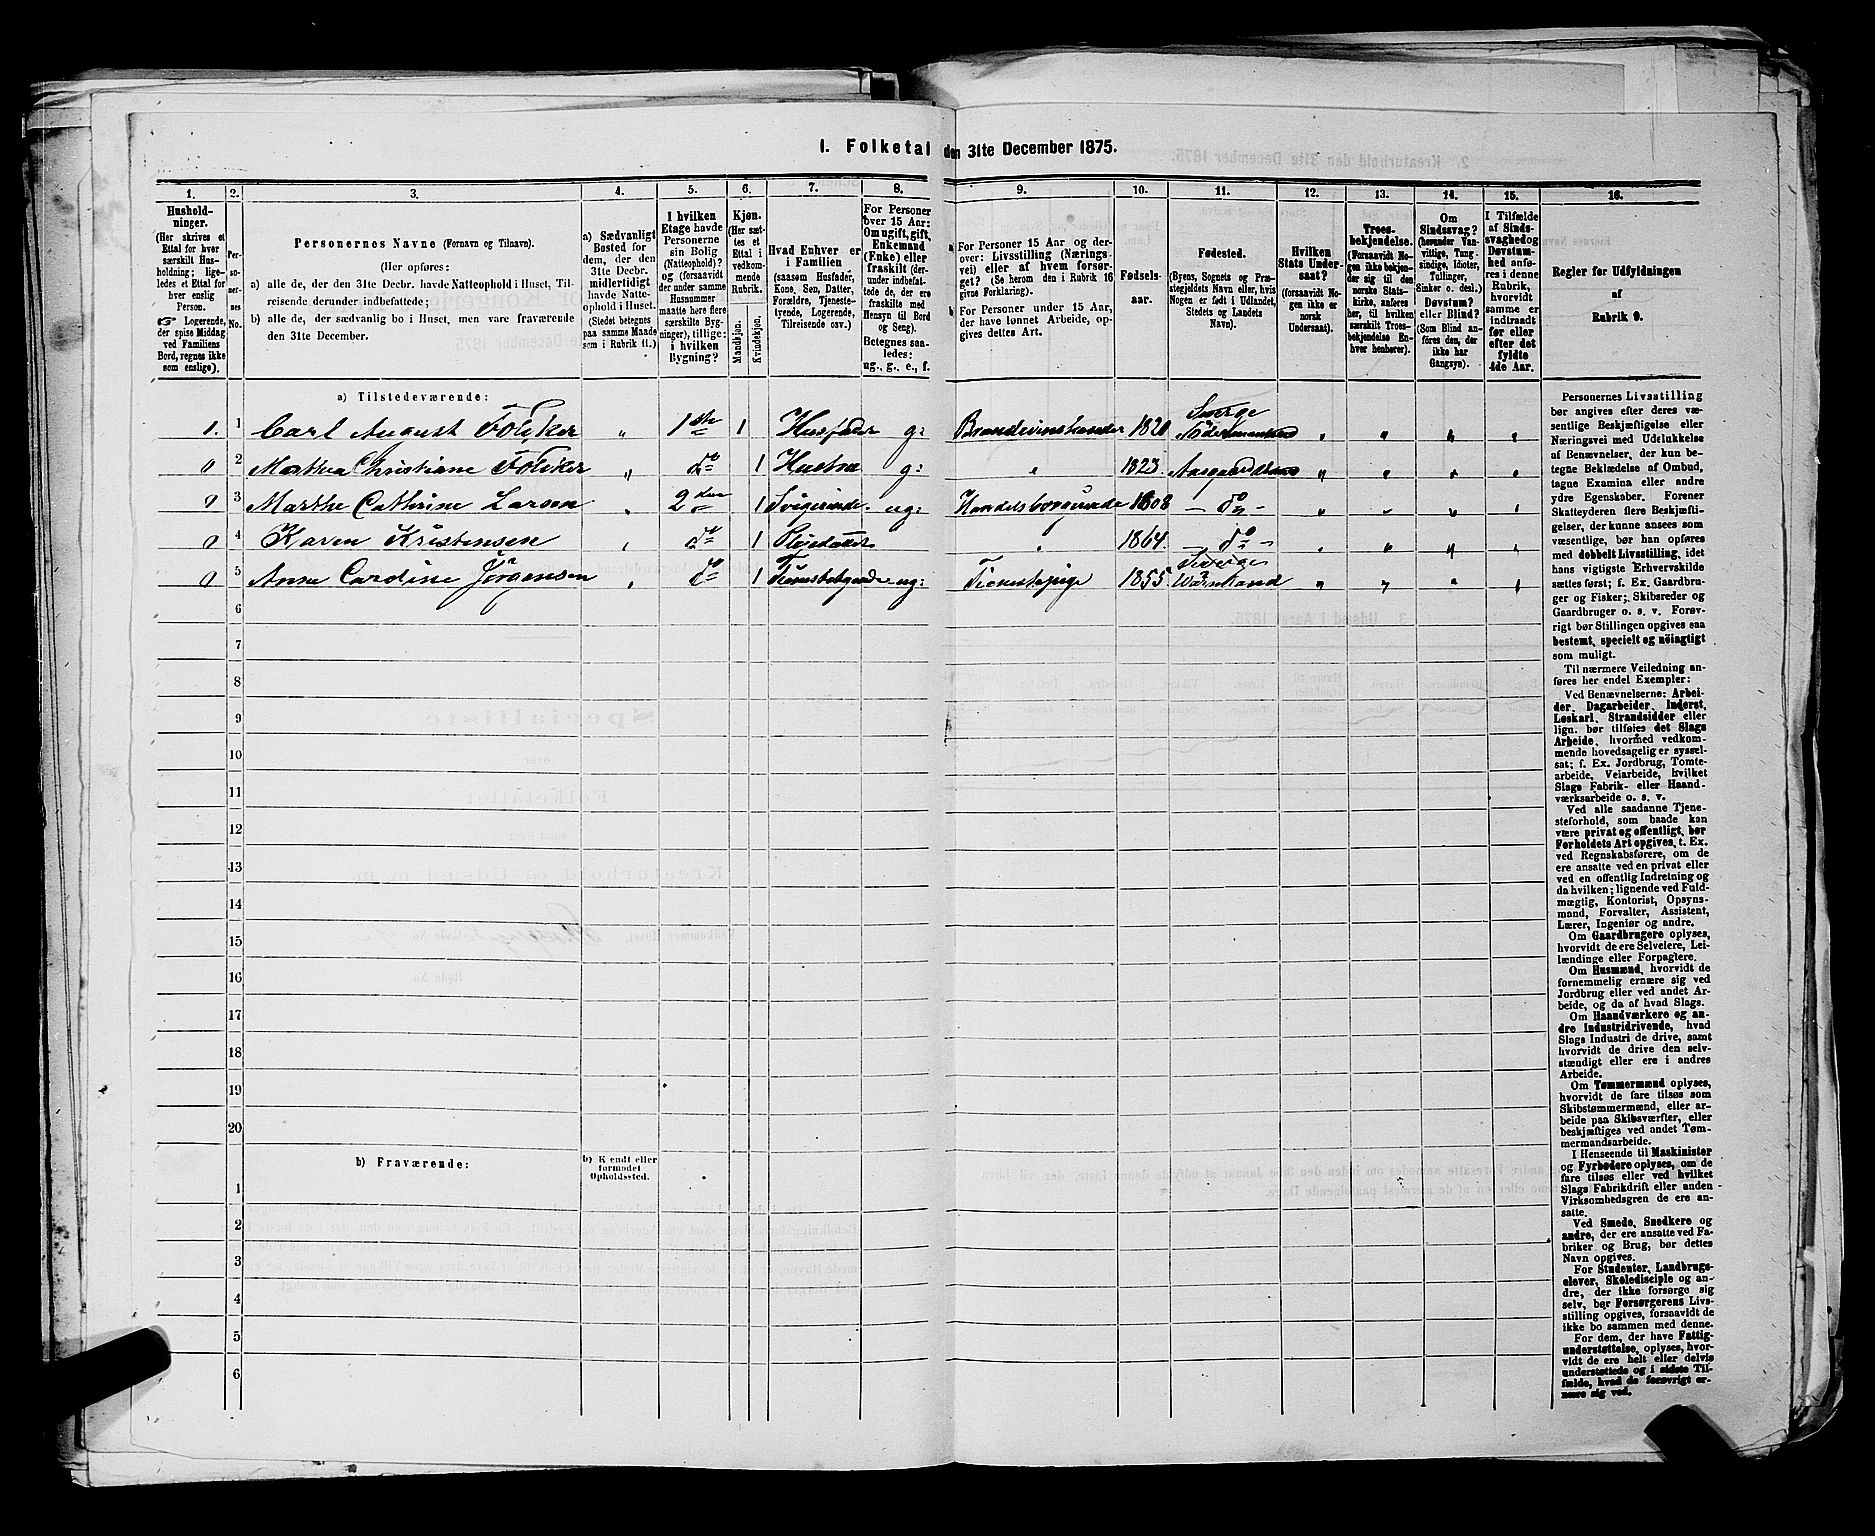 1. Folketal den 31te December 1875.
1. 2. 3. 4. 5. 6. 7. 8. 9. 10. 11. 12. 13. 14. 15. 16.
Hushold-
ninger.
(Her skrives et
Ettal for hver
særskilt Hus-
holdning; lige-
ledes et Ettal
for hver
enslig
Person.
☞ Logerende,
der spise Middag
ved Familiens
Bord, regnes ikke
som enslige).
Per-
so-
ner-
nes
No.
Personernes Navne (Fornavn og Tilnavn).
(Her opføres:
a) alle de, der den 31te Decbr. havde Natteophold i Huset, Til-
reisende derunder indbefattede;
b) alle de, der sædvanlig bo i Huset, men vare fraværende
den 31te December.
a) Sædvanligt
Bosted for
dem, der den
31te Decbr.
midlertidigt
havde Natte-
ophold i Huset.
(Stedet betegnes
paa samme Maade
som i Rubrik 11.)
I hvilken
Etage havde
Personerne
sin Bolig
(Natteophold)?
og (forsaavidt
der under samme
Husnummer
maatte høre flere
særskilte Byg-
ninger), tillige:
i hvilken
Bygning?
Kjøn.
(Her sæt-
tes et
Ettal i
vedkom-
mende
Rubrik.
Mandkjøn.
Kvindekjøn.
Hvad Enhver er
i Familien
(saasom Husfader,
Kone, Søn, Datter,
Forældre, Tjeneste-
tyende, Logerende,
Tilreisende osv.)
For Personer
over 15 Aar:
Om ugift, gift,
Enkemand
(Enke) eller
fraskilt (der-
under indbefat-
tede de, der ere
fraskilte med
Hensyn til Bord
og Seng).
Betegnes saa-
ledes:
ug., g., e., f.
a For Personer 15 Aar og der-
over: Livsstilling (Nærings-
vei) eller af hvem forsør-
get? (Se herom den i Rubrik 16
givne Forklaring).
b For Personer under 15 Aar,
der have lønnet Arbeide, op-
gives dettes Art.
Fødsels-
aar.
Fødested.
(Byens, Sognets og Præ-
stegjeldets Navn eller, hvis
Nogen er født i Udlandet,
Stedets og Landets
Navn).
Hvilken
Stats Under-
saat?
(forsaavidt No-
gen ikke er
norsk
Undersaat).
Troes-
bekjendelse.
(Forsaavidt No-
gen ikke bekjen-
der sig til den
norske Stats-
kirke, anføres
her, til hvilken
særskilt Troes-
bekjendelse En-
hver henhører).
Om
Sindssvag?
(herunder Van-
vittige, Tung-
sindige, Idioter,
Tullinger,
Sinker o. desl.)
Døvstum?
eller Blind?
(Som Blind an-
føres den, der
ikke har
Gangsyn).
I Tilfælde
af Sinds-
svaghed og
Døvstum-
hed anfø-
res i denne
Rubrik,
hvorvidt
samme er
indtraadt
før eller
efter det
fyldte
4de Aar.
Regler for Udfyldningen
af
Rubrik 9.
a) Tilstedeværende:
1. 1 Carl August Fölcker „ 1ste 1 Husfader g: Brændevinshandler 1820 Sverge Södermanland
2 Marthea Christiane Fölcker „ do 1 Hustru g: „ 1823 Aasgaardstrand
3 Marthe Cathrine Larsen „ 2den 1 Svigerinde ug: Handelsborgerinde 1808 do
4 Karen Kristensen „ do 1 Pleiedatter „ 1864 do
5 Anne Cardine Jörgensen „ do 1 ug: Tjenestepige 1855 Sverige Wärmland
6
7
8
9
10
11
12
13
14
15
16
17
18
19
20
b) Fraværende:
b) Kjendt eller
formodet
Opholdssted.
1
2
3
4
5
6
Personernes Livsstilling
bør angives efter deres væ-
sentlige Beskjæftigelse eller
Næringsvei med Udelukkelse
af Benævnelser, der kun be-
tegne Beklædelse af Ombud,
tagne Examina eller andre
ydre Egenskaber. Forener
Skatteyderen flere Beskjæfti-
gelser, der kunne ansees som
væsentlige, bør han opføres
med dobbelt Livsstilling, idet
hans vigtigste Erhvervskilde
sættes først; f. Ex. Gaardbru-
ger og Fisker; Skibsreder og
Gaardbruger o. s. v. Forøv-
rigt bør Stillingen opgives saa
bestemt, specielt og nöiagtigt
som muligt.
Til nærmere Veiledning an-
føres her endel Exempler:
Ved Benævnelserne: Arbei-
der, Dagarbeider, Inderst,
Løskarl, Strandsidder eller
lign. bør tilføies det Slags
Arbeide, hvormed vedkom-
mende hovedsagelig er syssel-
sat; f. Ex. Jordbrug, Tomte-
arbeide, Veiarbeide, hvilket
Slags Fabrik- eller Haand-
værksarbeide o. s. v.
Ved alle saadanne Tjene-
steforhold, som baade kan
være privat og offentligt, bør
Forholdets Art opgives, t. Ex.
ved Regnskabsførere, om de
ere ansatte ved en privat eller
ved en offentlig Indretning og
da hvilken; lignende ved Fuld-
mægtig, Kontorist, Opsyns-
mand, Forvalter, Assistent,
Lærer, Ingeniør og andre.
Om Gaardbrugere oplyses,
hvorvidt de ere Selveiere, Lei-
lændinge eller Forpagtere.
Om Husmænd, hvorvidt de
fornemmelig ernære sig ved
Jordbrug eller ved andet Ar-
beide, og da af hvad Slags.
Om Haandværkere og an-
dre industridrivende, hvad
Slags Industri de drive, samt
hvorvidt de drive den selv-
stændigt eller ere i andres
Arbeide.
Om Tømmermænd oplyses,
hvorvidt de fare tilsøs som
Skibstømmermænd, eller ar-
beide paa Skibsværfter, eller
beskjæftiges ved andet Tøm-
mermandsarbeide.
I Henseende til Maskinister
og Fyrbødere oplyses, om de
fare tilsøs eller ved hvilket
Slags Fabrikdrift eller anden
Virksomhedsgren de ere an-
satte.
Ved Smede, Snedkere og
andre, der ere ansatte ved Fa-
briker og Brug, bør dettes
Navn opgives.
For Studenter, Landbrugs-
elever, Skoledisciple og an-
dre, der ikke forsørge sig
selv, bør Forsørgerens Livs-
stilling opgives, forsaavidt de
ikke bo sammen med denne.
For dem, der have Fattig-
understøttelse, oplyses, hvor-
vidt de ere helt eller delvis
understøttede og i sidste Til-
fælde, hvad de forøvrigt er-
nære sig ved.